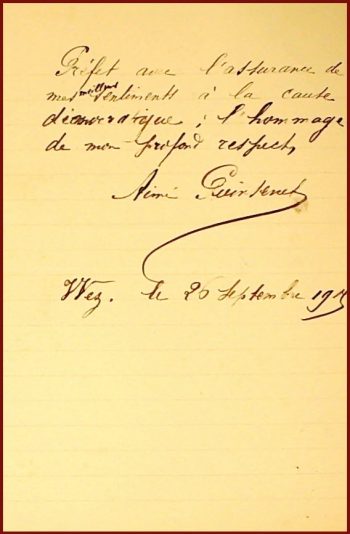 Préfet avec l'assurance de
mes meilleurs sentiments à la cause
démocratique ; l'hommage
de mon profond respect,
Aimé
Wez. le 26 septembre